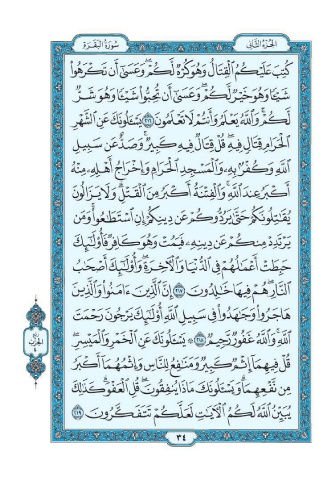 الجزء الثاني
سورة البقرة
كُتِبَ عَلَيْكُمُ ٱلْقِتَالُ وَهُوَ كُرْهٌ لَّكُمْ ۖ وَعَسَىٰٓ أَن تَكْرَهُوا۟
شَيْـًٔا وَهُوَ خَيْرٌ لَّكُمْ ۖ وَعَسَىٰٓ أَن تُحِبُّوا۟ شَيْـًٔا وَهُوَ شَرٌّ
لَّكُمْ ۗ وَٱللَّهُ يَعْلَمُ وَأَنتُمْ لَا تَعْلَمُونَ ٢١٦ يَسْـَٔلُونَكَ عَنِ ٱلشَّهْرِ
ٱلْحَرَامِ قِتَالٍ فِيهِ ۖ قُلْ قِتَالٌ فِيهِ كَبِيرٌ ۖ وَصَدٌّ عَن سَبِيلِ
ٱللَّهِ وَكُفْرٌۢ بِهِۦ وَٱلْمَسْجِدِ ٱلْحَرَامِ وَإِخْرَاجُ أَهْلِهِۦ مِنْهُ
أَكْبَرُ عِندَ ٱللَّهِ ۚ وَٱلْفِتْنَةُ أَكْبَرُ مِنَ ٱلْقَتْلِ ۗ وَلَا يَزَالُونَ
يُقَٰتِلُونَكُمْ حَتَّىٰ يَرُدُّوكُمْ عَن دِينِكُمْ إِنِ ٱسْتَطَٰعُوا۟ ۚ وَمَن
يَرْتَدِدْ مِنكُمْ عَن دِينِهِۦ فَيَمُتْ وَهُوَ كَافِرٌ فَأُو۟لَٰٓئِكَ
حَبِطَتْ أَعْمَٰلُهُمْ فِى ٱلدُّنْيَا وَٱلْـَٔاخِرَةِ ۖ وَأُو۟لَٰٓئِكَ أَصْحَٰبُ
ٱلنَّارِ ۖ هُمْ فِيهَا خَٰلِدُونَ ٢١٧ إِنَّ ٱلَّذِينَ ءَامَنُوا۟ وَٱلَّذِينَ
هَاجَرُوا۟ وَجَٰهَدُوا۟ فِى سَبِيلِ ٱللَّهِ أُو۟لَٰٓئِكَ يَرْجُونَ رَحْمَتَ
ٱللَّهِ ۚ وَٱللَّهُ غَفُورٌ رَّحِيمٌ ٢١٨ ۞ يَسْـَٔلُونَكَ عَنِ ٱلْخَمْرِ وَٱلْمَيْسِرِ ۖ
قُلْ فِيهِمَآ إِثْمٌ كَبِيرٌ وَمَنَٰفِعُ لِلنَّاسِ وَإِثْمُهُمَآ أَكْبَرُ
مِن نَّفْعِهِمَا ۗ وَيَسْـَٔلُونَكَ مَاذَا يُنفِقُونَ قُلِ ٱلْعَفْوَ ۗ كَذَٰلِكَ
يُبَيِّنُ ٱللَّهُ لَكُمُ ٱلْـَٔايَٰتِ لَعَلَّكُمْ تَتَفَكَّرُونَ ٢١٩
٣٤